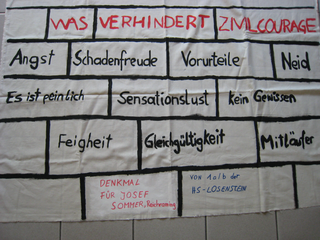 WAS VERHINDERT ZIVILCOURAGE
Angst Schadenfreude Vorurteile Neid
Es ist peinlich Sensationslust kein Gewissen
Feigheit Gleichgültigkeit Mitläufer
DENKMAL
FÜR JOSEF
SOMMER,
VON
DER
HS-LOSENSTEIN